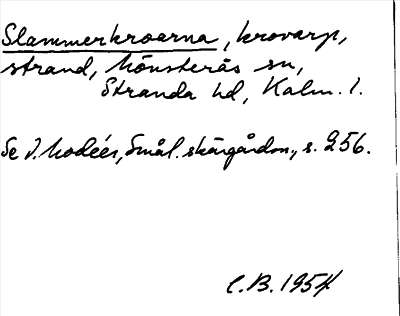 Slammerkroarna, krovarp,
strand, Mönsterås sn,
Stranda hd, Kalm. l.
Se J. Modéer, Smål. skärgårdsn., s. 256.
C.B. 1954